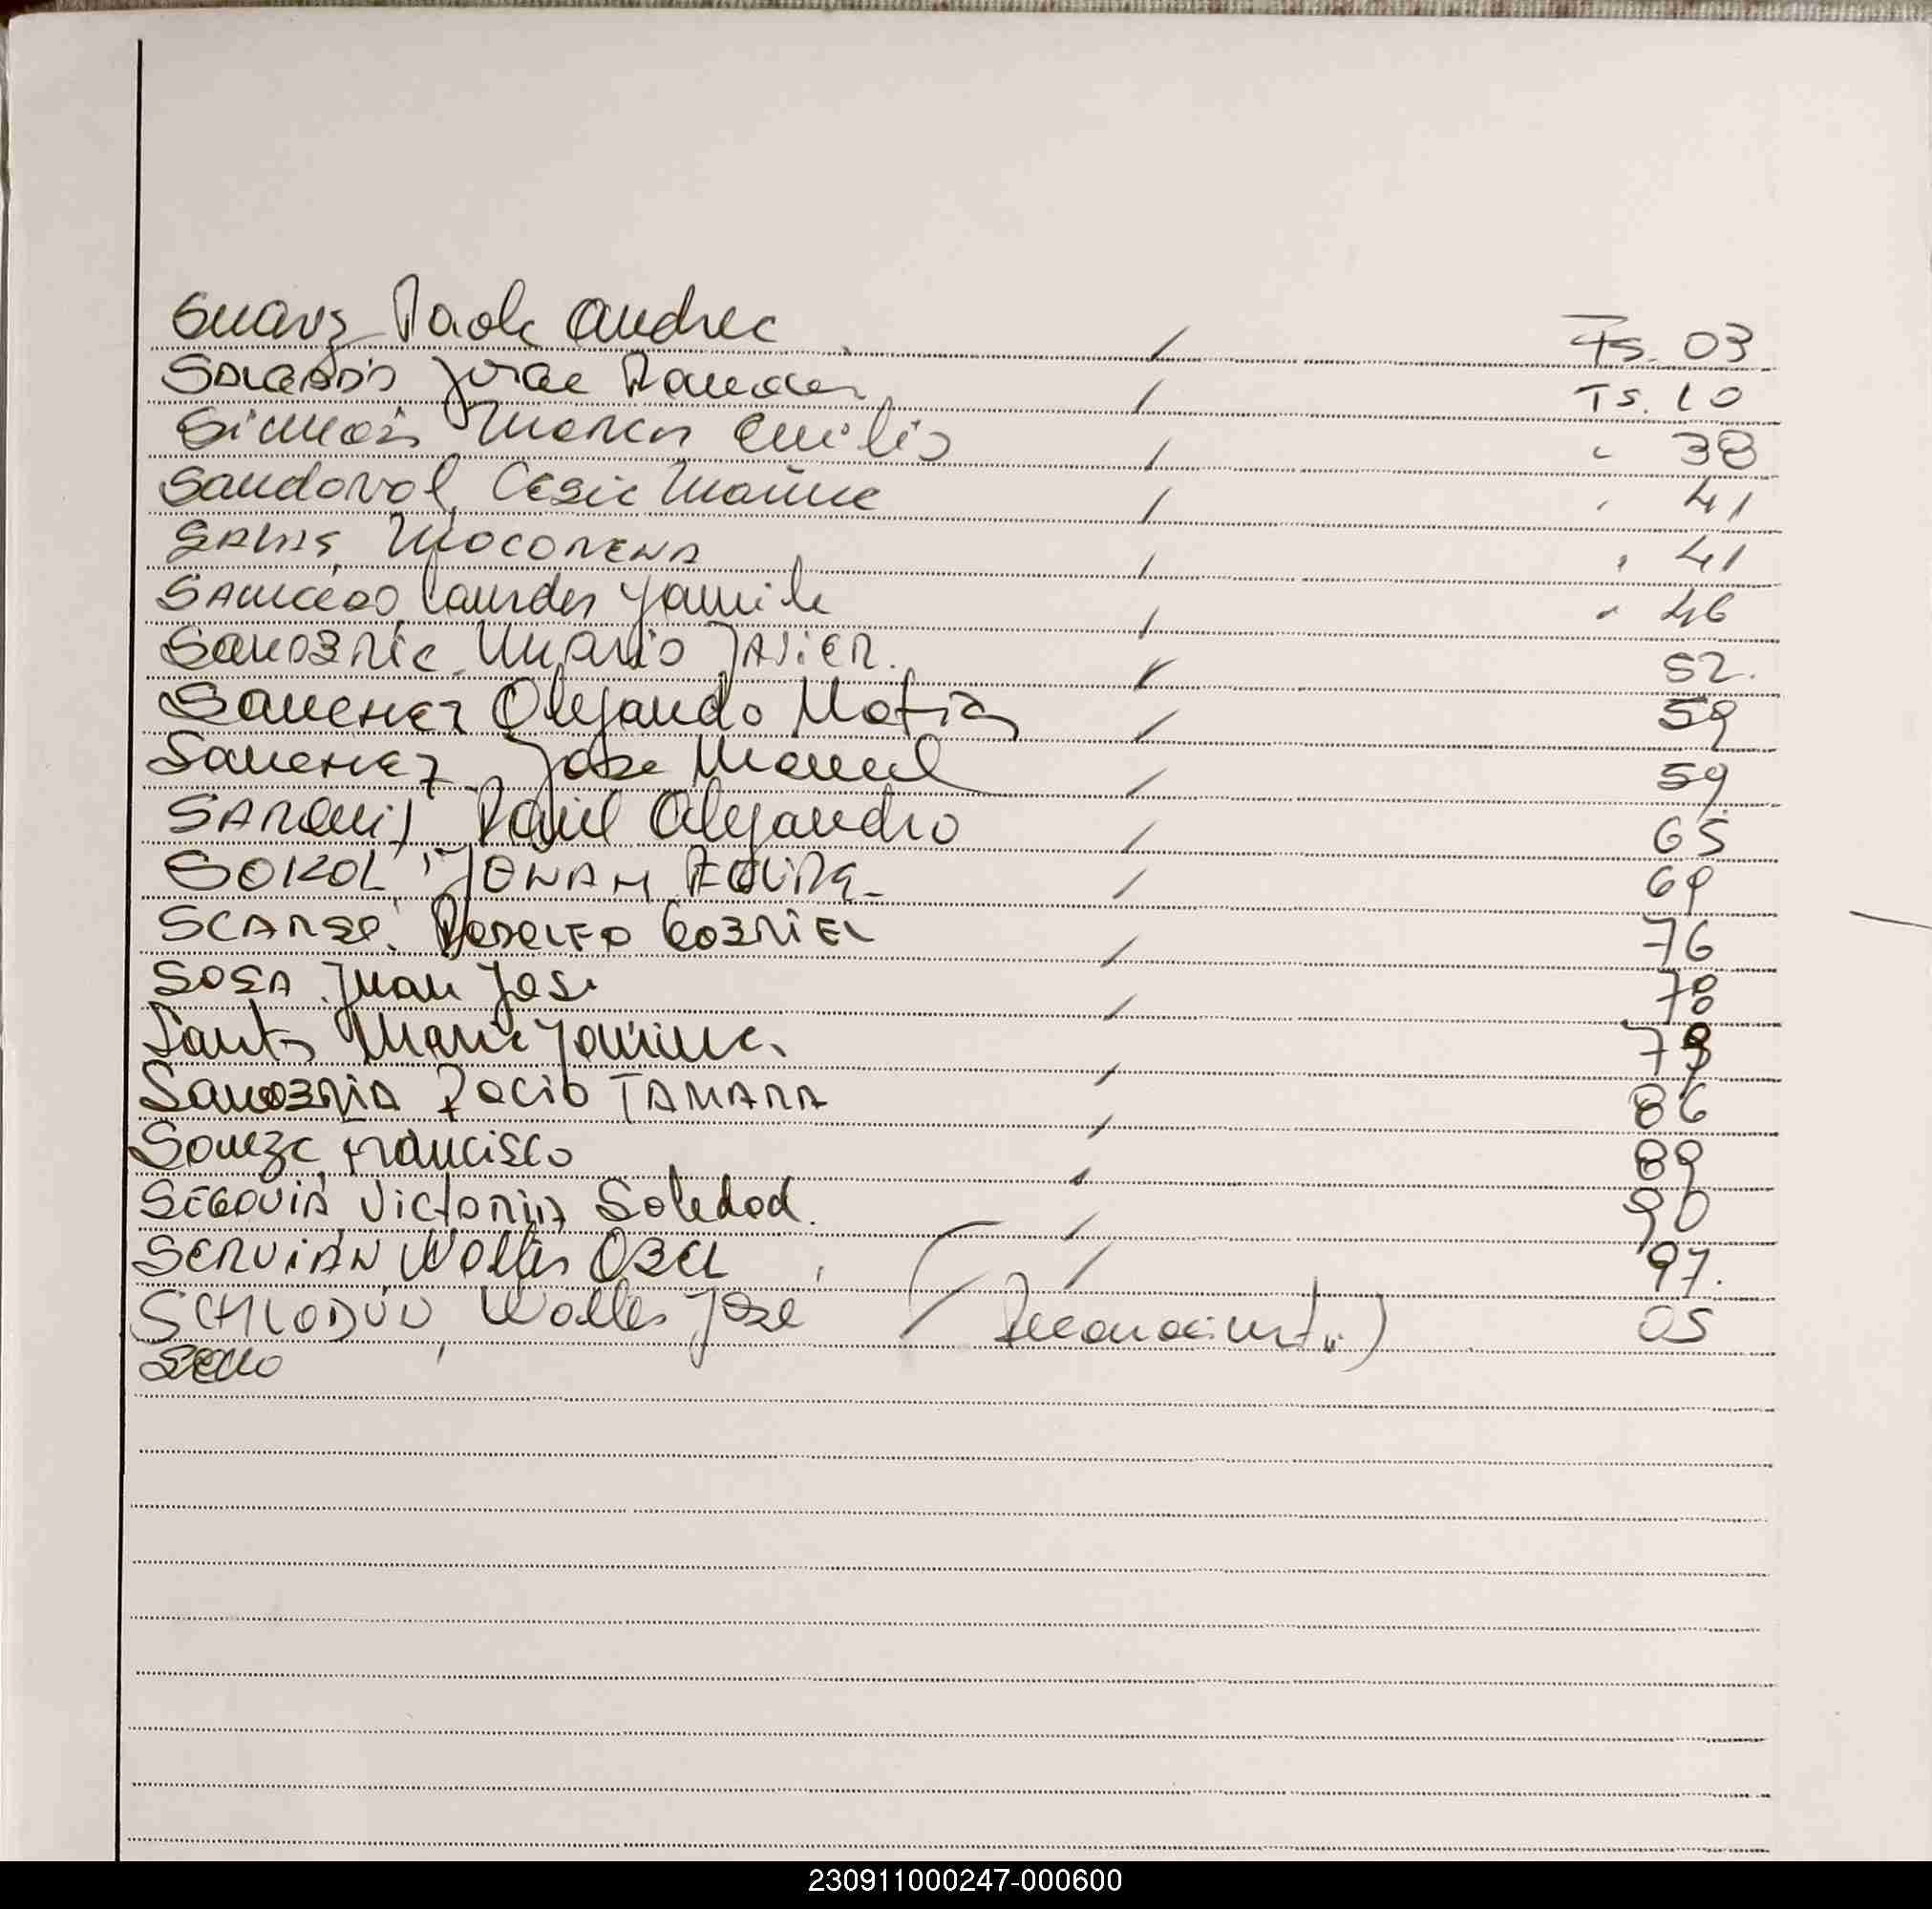 Suarez Paola Andrea / Fs. 03
Salgado Jorge Ramon / Fs. 10
Marcos Emilio / " 38
Sandoval, Cesia / " 41
Salas, Macorena / " 41
Lourdes Yamile / " 46
Sanabria Mario Javier. / 52.
Sanchez Alejandro Matias / 59
Sanchez Jose Manuel / 59
Sarquis Raul Alejandro / 65
SOKOL, JONAH / 69
Rodolfo Gabriel / 76
SOSA Juan Jose / 78
Maria / 79
Sanabria Rocio TAMARA / 86
Souza, Francisco / 89
SEGOVIA Victoria Soledad. / 90
SERVIAN Walter Abel / 97.
Walter Jose / (Reconocimiento) 05